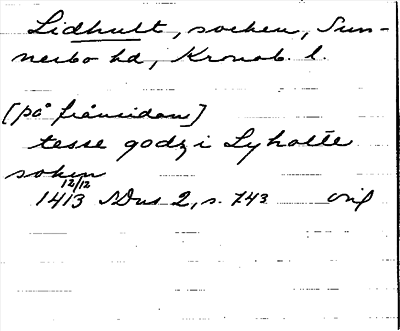 Lidhult, socken, Sun-
nerbo hd, Kronob. l.
[på frånsidan]
tesse godz i Lyholte
sokn
12/12
1413 SDns 2, s. 743 orig